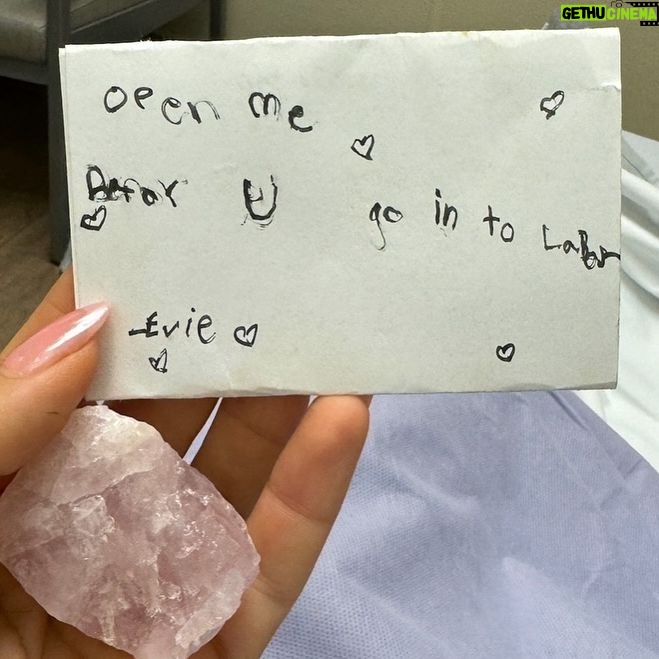 GETHUCINEMA
open me
Befor U go in to Labor
-Evie